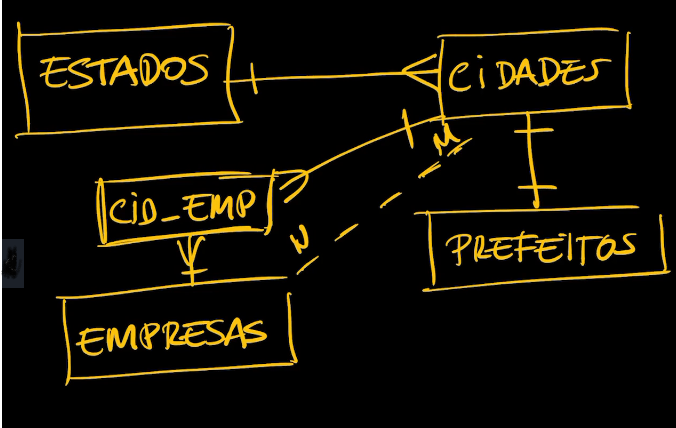 ESTADOS
CiDADES
M
CiD_EMP
N
PREFEITOS
EMPRESAS